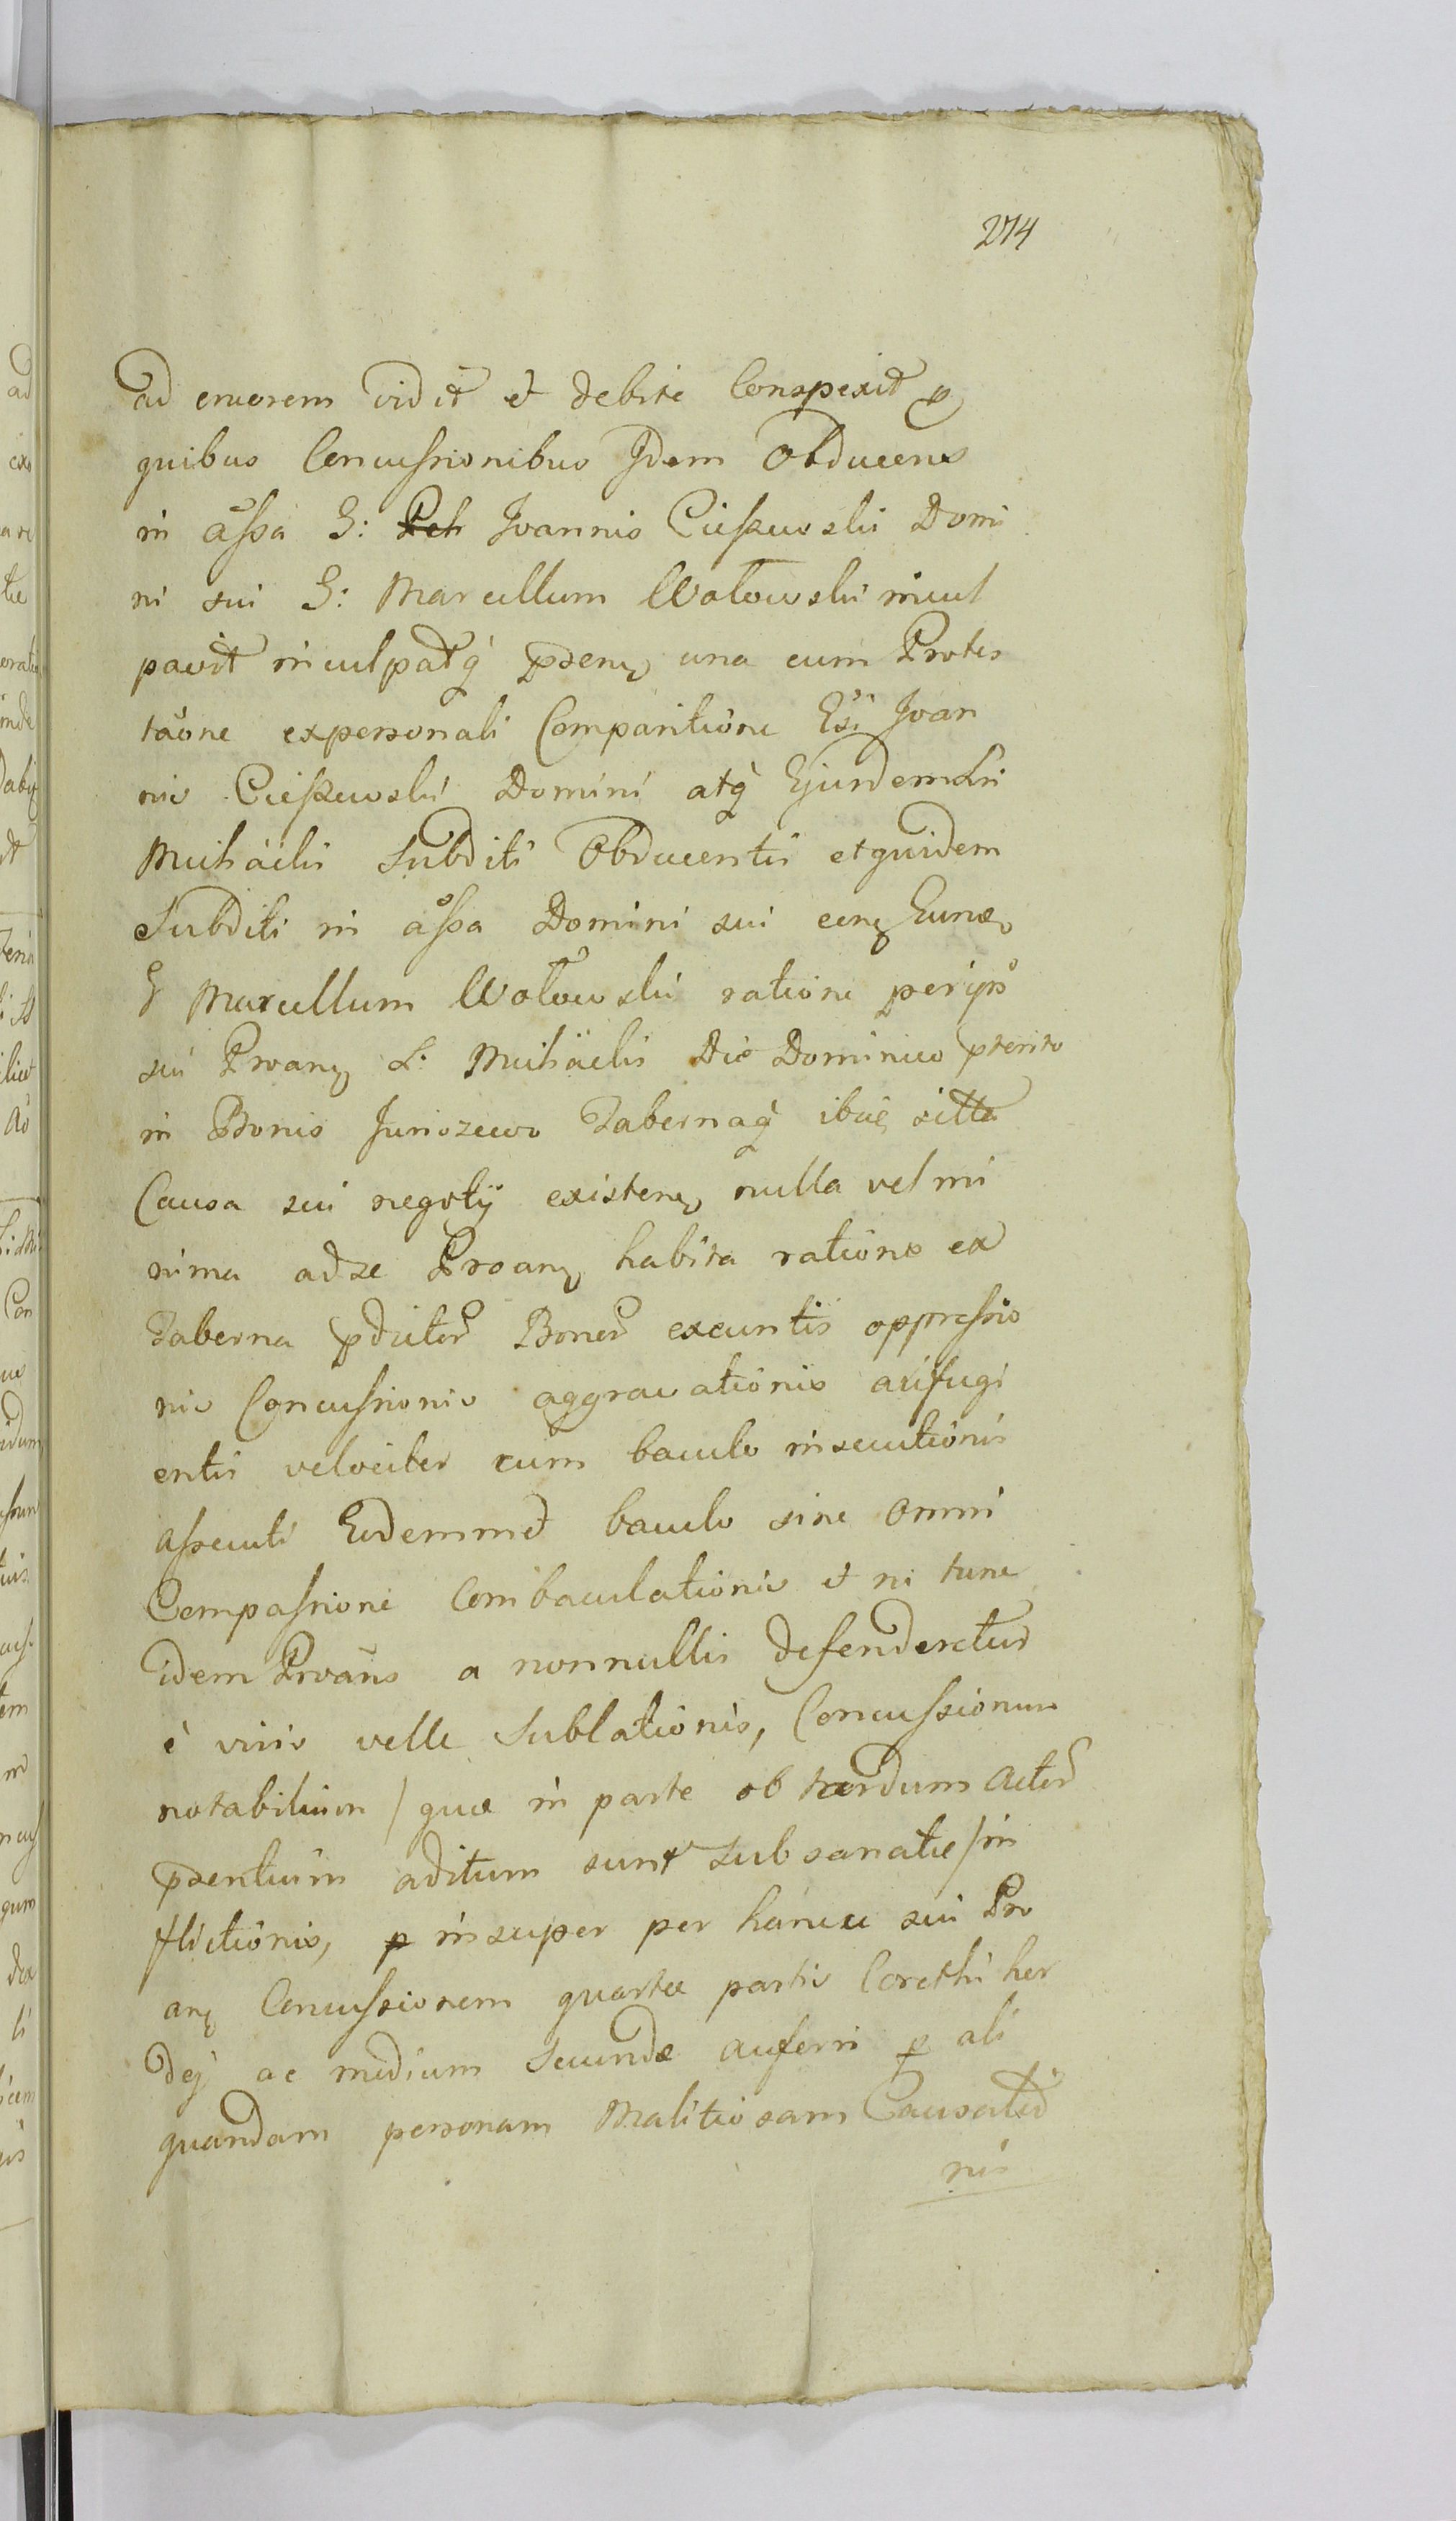 274
ad cruorem vidit et debite Conspexit p
quibus Concussionibus Idem Obducens
in assa G: Joannis Cieszewski Domi
ni sui G: Marcellum Wołowski incul
pavit inculpatq̀ pdsenę una cum Protes
taõne expersonali Comparitione Gsi Joan
nis Cieszewski Domini atq̀ Ejusdem Lri
Michäelis Subditi Obducentis et quidem
Subditi in assa Domini sui
G Marcellum Wołowski ratione per ips
sū Proanę L: Michäelis Die Dominico pterito
in Bonis Juniszewo Tabernaq̀ ibiē sitta
Causa sui negotÿ existenę nulla vel mi
nima ad se Proanę habita ratione ex
Taberna pdictor Bonor exeuntis oppressio
nis Concussionis aggravationis aufugi
entis velociter cum baculo insecutionis
assecuti Eodemmet baculo sine omni
Compassione Combaculationis et ni tunc
idem Proans a nonnullis defenderetur
è vivis velle Sublationis, Concussionum
notabilium / quæ in parte ob tardum Actor
pdsentium aditum sunt Subsanatæ / in
flictionis, p insuper per hancce sui Pro
anę Concussionem quartæ partis Corethi hor
dej ac medium Secundæ auferri p ali
quandam personam Malitiosam Causatio
nis